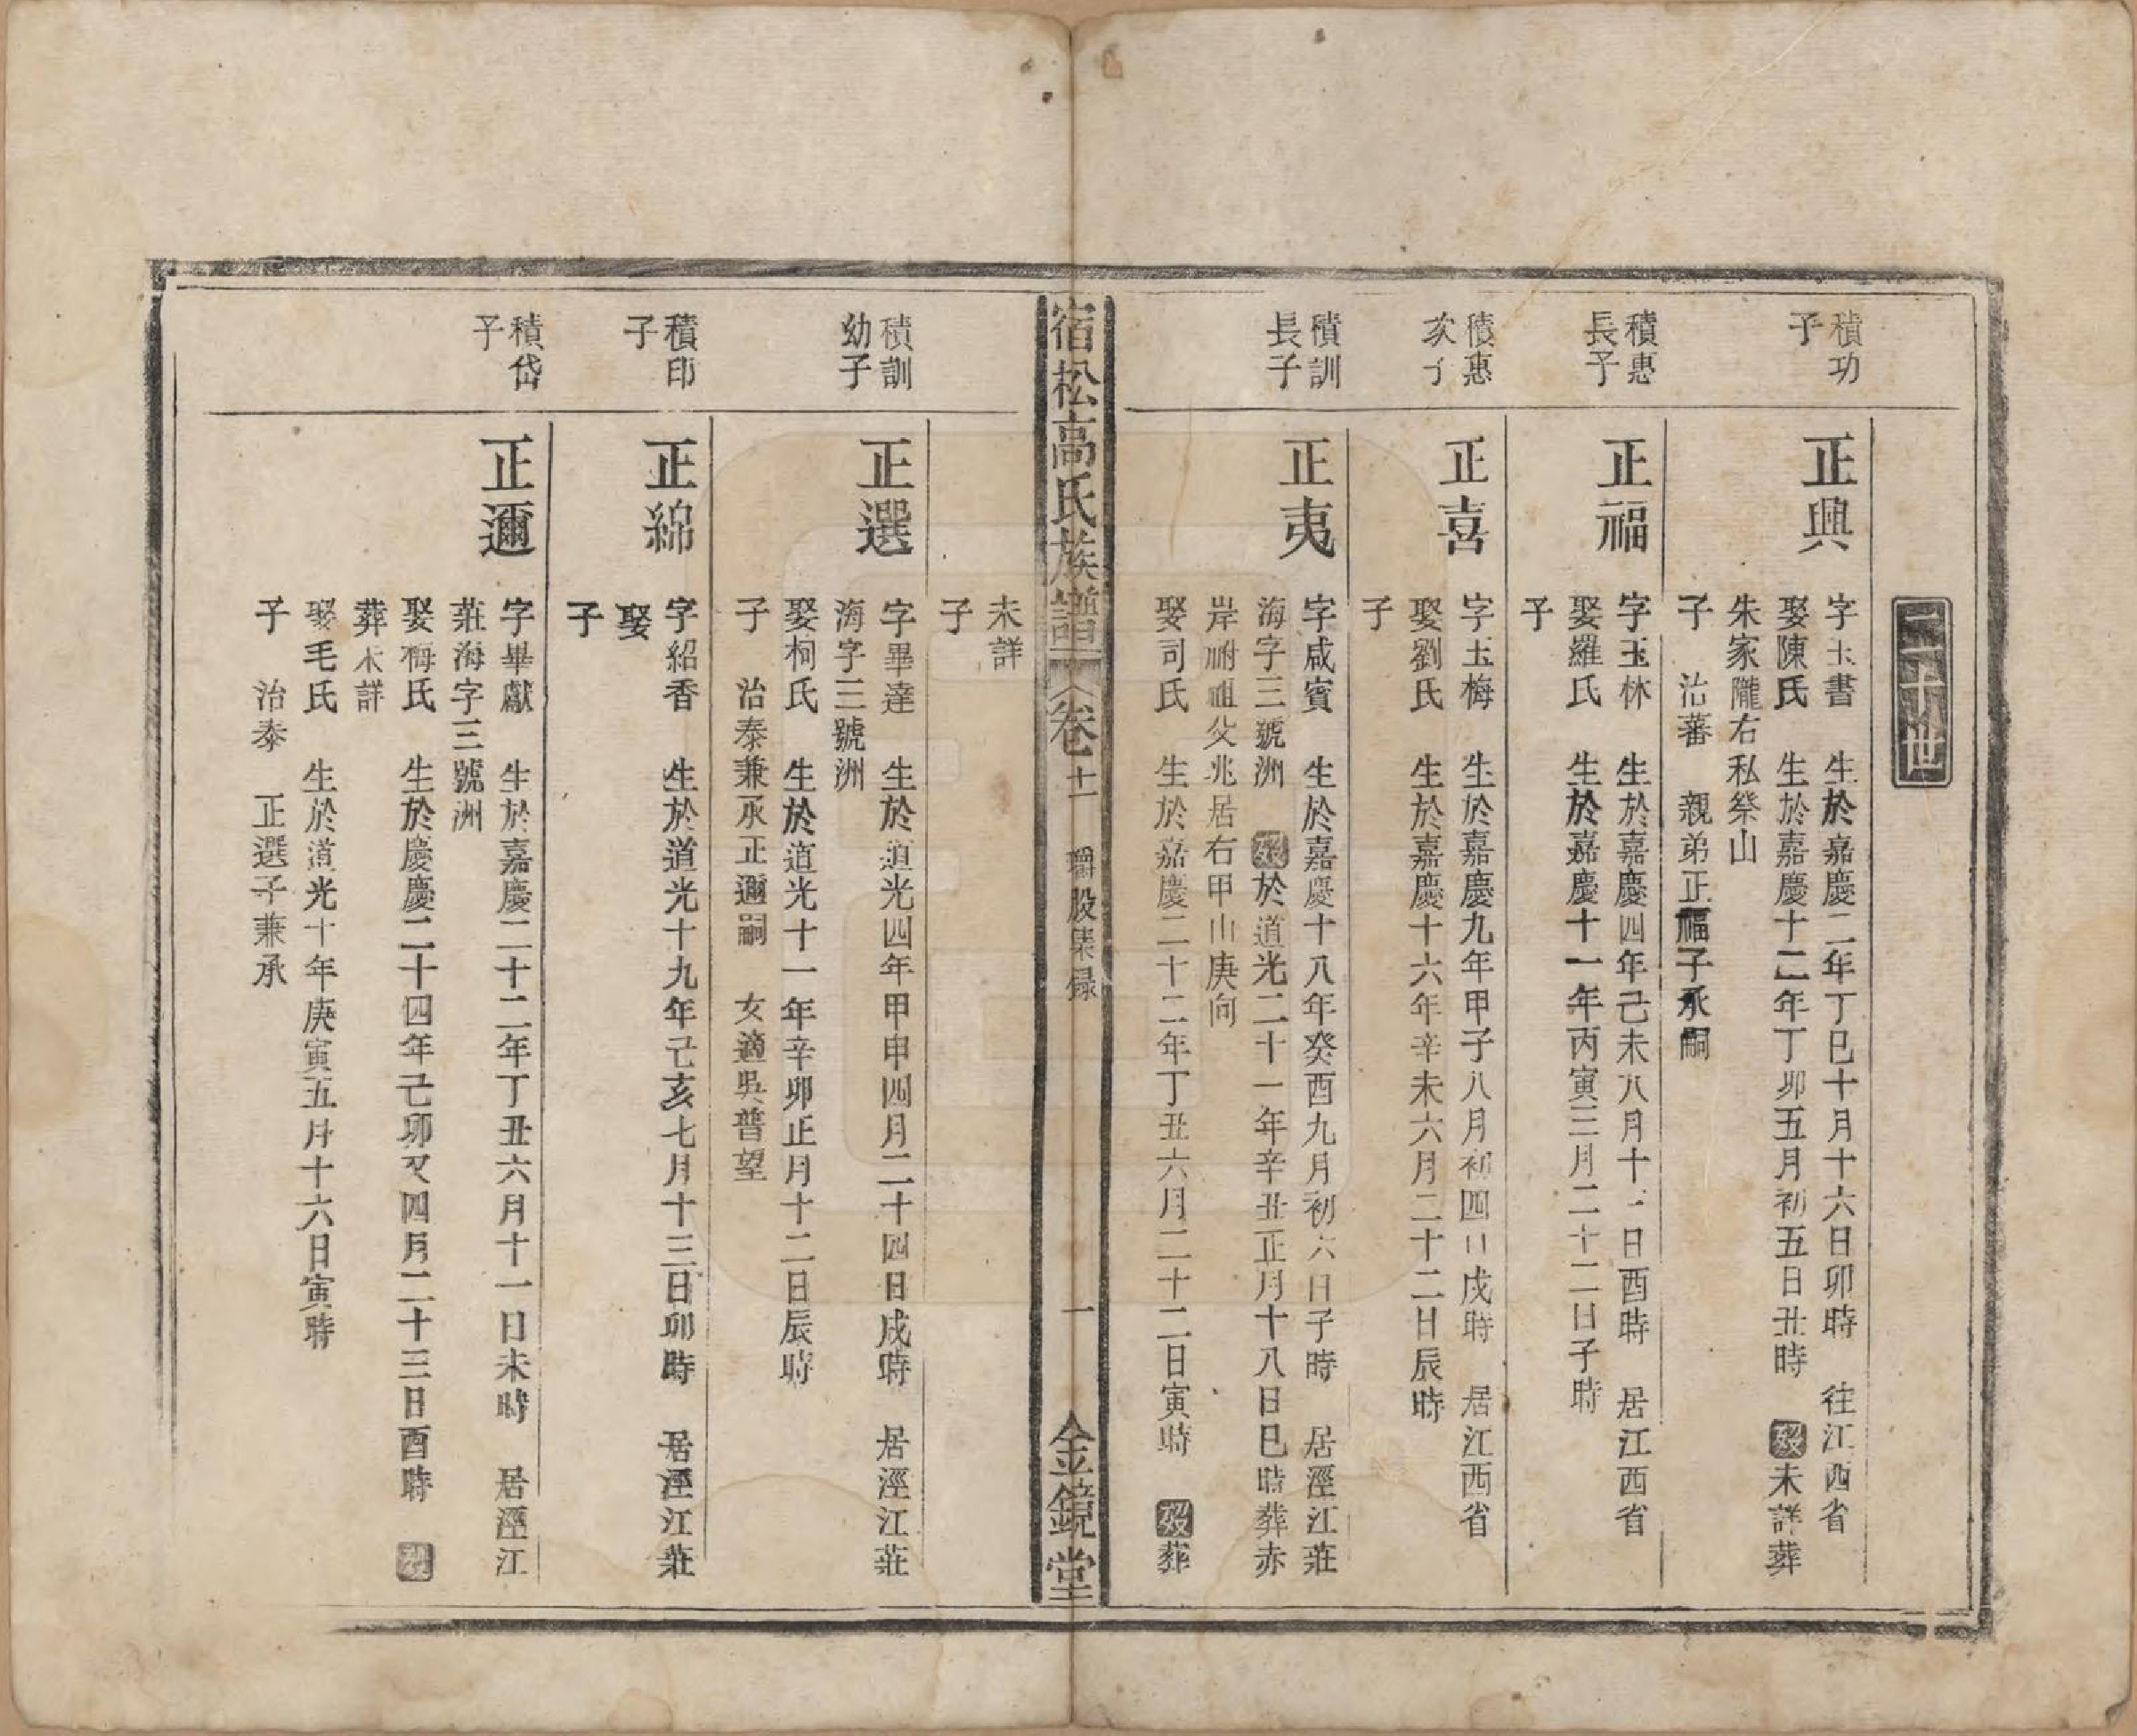 二十世
積功
子
正興
字玉書　生於嘉慶二年丁巳十月十六日卯時　往江西省
娶陳氏　生於嘉慶十二年丁卯五月初五日丑時　歿未詳葬
朱家隴右私祭山
子　治蕃　親弟正福子承嗣
積惠
長子
正福
字玉林　生於嘉慶四年己未八月十一日酉時　居江西省
娶羅氏　生於嘉慶十一年丙寅三月二十二日子時
子
積惠
次子
正喜
字玉梅　生於嘉慶九年甲子八月初四日戌時　居江西省
娶劉氏　生於嘉慶十六年辛未六月二十二日辰時
子
積訓
長子
正夷
字咸賓　生於嘉慶十八年癸酉九月初六日子時　居涇江莊
海字三號洲　歿於道光二十一年辛丑正月十八日巳時葬赤
岸祔祖父兆居右甲山庚向
娶司氏　生於嘉慶二十二年丁丑六月二十二日寅時　歿葬
宿松高氏族譜　卷十一　股集录　一　金鏡堂
未詳
子
積訓
幼子
正選
字畢達　生於道光四年甲申四月二十四日戌時　居涇江莊
海字三號洲
娶柯氏　生於道光十一年辛卯正月十二日辰時
子　治泰兼承正邇嗣　女適吳普望
積印
子
正綿
字紹香　生於道光十九年己亥七月十三日卯時　居涇江莊
娶
子
積岱
子
正邇
字畢獻　生於嘉慶二十二年丁丑六月十一日未時　居涇江
莊海字三號洲
娶梅氏　生於慶慶二十四年己卯又四月二十三日酉時　歿
葬未詳
娶毛氏　生於道光十年庚寅五月十六日寅時
子　治泰　正選子兼承